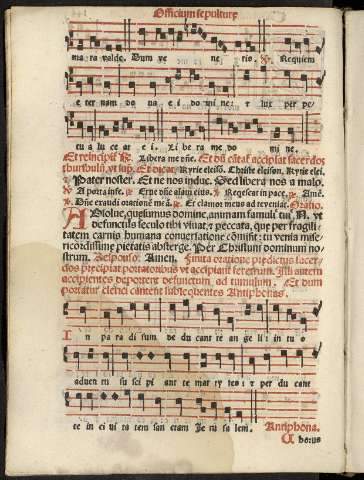 Officium sepulture
ma ra valde. Dum ve ne rio. ℣. Requiem
eter nam do na e i do mine: et lux per pe
tu a lu ce at e i. Li be ra me do mi ne.
Et reincipit ℟. Libera me dñe. Et dũ cãtat̃ accipiat sacerdos
thuribulũ vt sup̃. Et dicat. Kyrie eleisõ. Christe eleison. Kyrie elei.
Pater noster. Et ne nos induc. Sed libera nos a malo.
℣. A porta inferi. ℟. Erue dñe aĩam eius. ℣. Requiescat in pace. ℟. Amẽ.
℣. Dñe exaudi orationẽ meã. ℟. Et clamor meus ad te veniat. Oratio.
Absolue, quesumus domine, animam famuli tui N. vt
defunctus seculo tibi viuat, ⁊ peccata, que per fragili
tatem carnis humana conuersatione cõmisit: tu venia mise
ricordissime pietatis absterge. Per Christum dominum no
strum. Responso. Amen. Finita oratione predictus sacer
dos precipiat portatoribus vt accipiant feretrum. Illi autem
accipientes deportent defunctum ad tumulum. Et dum
portatur clerici cantent subsequentes Antiphonas.
In pa ra di sum de du cant te an ge li: in tu o
aduen tu su sci pi ant te mar ty res: ⁊ per du cant
te in ci ui ta tem san ctam Je ru sa lem. Antiphona.
C horus